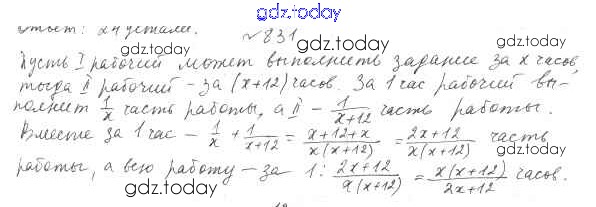 gdz.today
ответ: устали. №831
gdz.today
Пусть I рабочий может выполнить задание за x часов,
тогда II рабочий – за (x+12) часов. За 1 час рабочий вы-
gdz.today
полнит 1/x часть работы, а II – 1/(x+12) часть работы.
Вместе за 1 час – 1/x + 1/(x+12) = (x+12+x)/(x(x+12)) = (2x+12)/(x(x+12)) часть
gdz.today gdz.today
работы, а всю работу – за 1: (2x+12)/(x(x+12)) = (x(x+12))/(2x+12) часов.
gdz.today